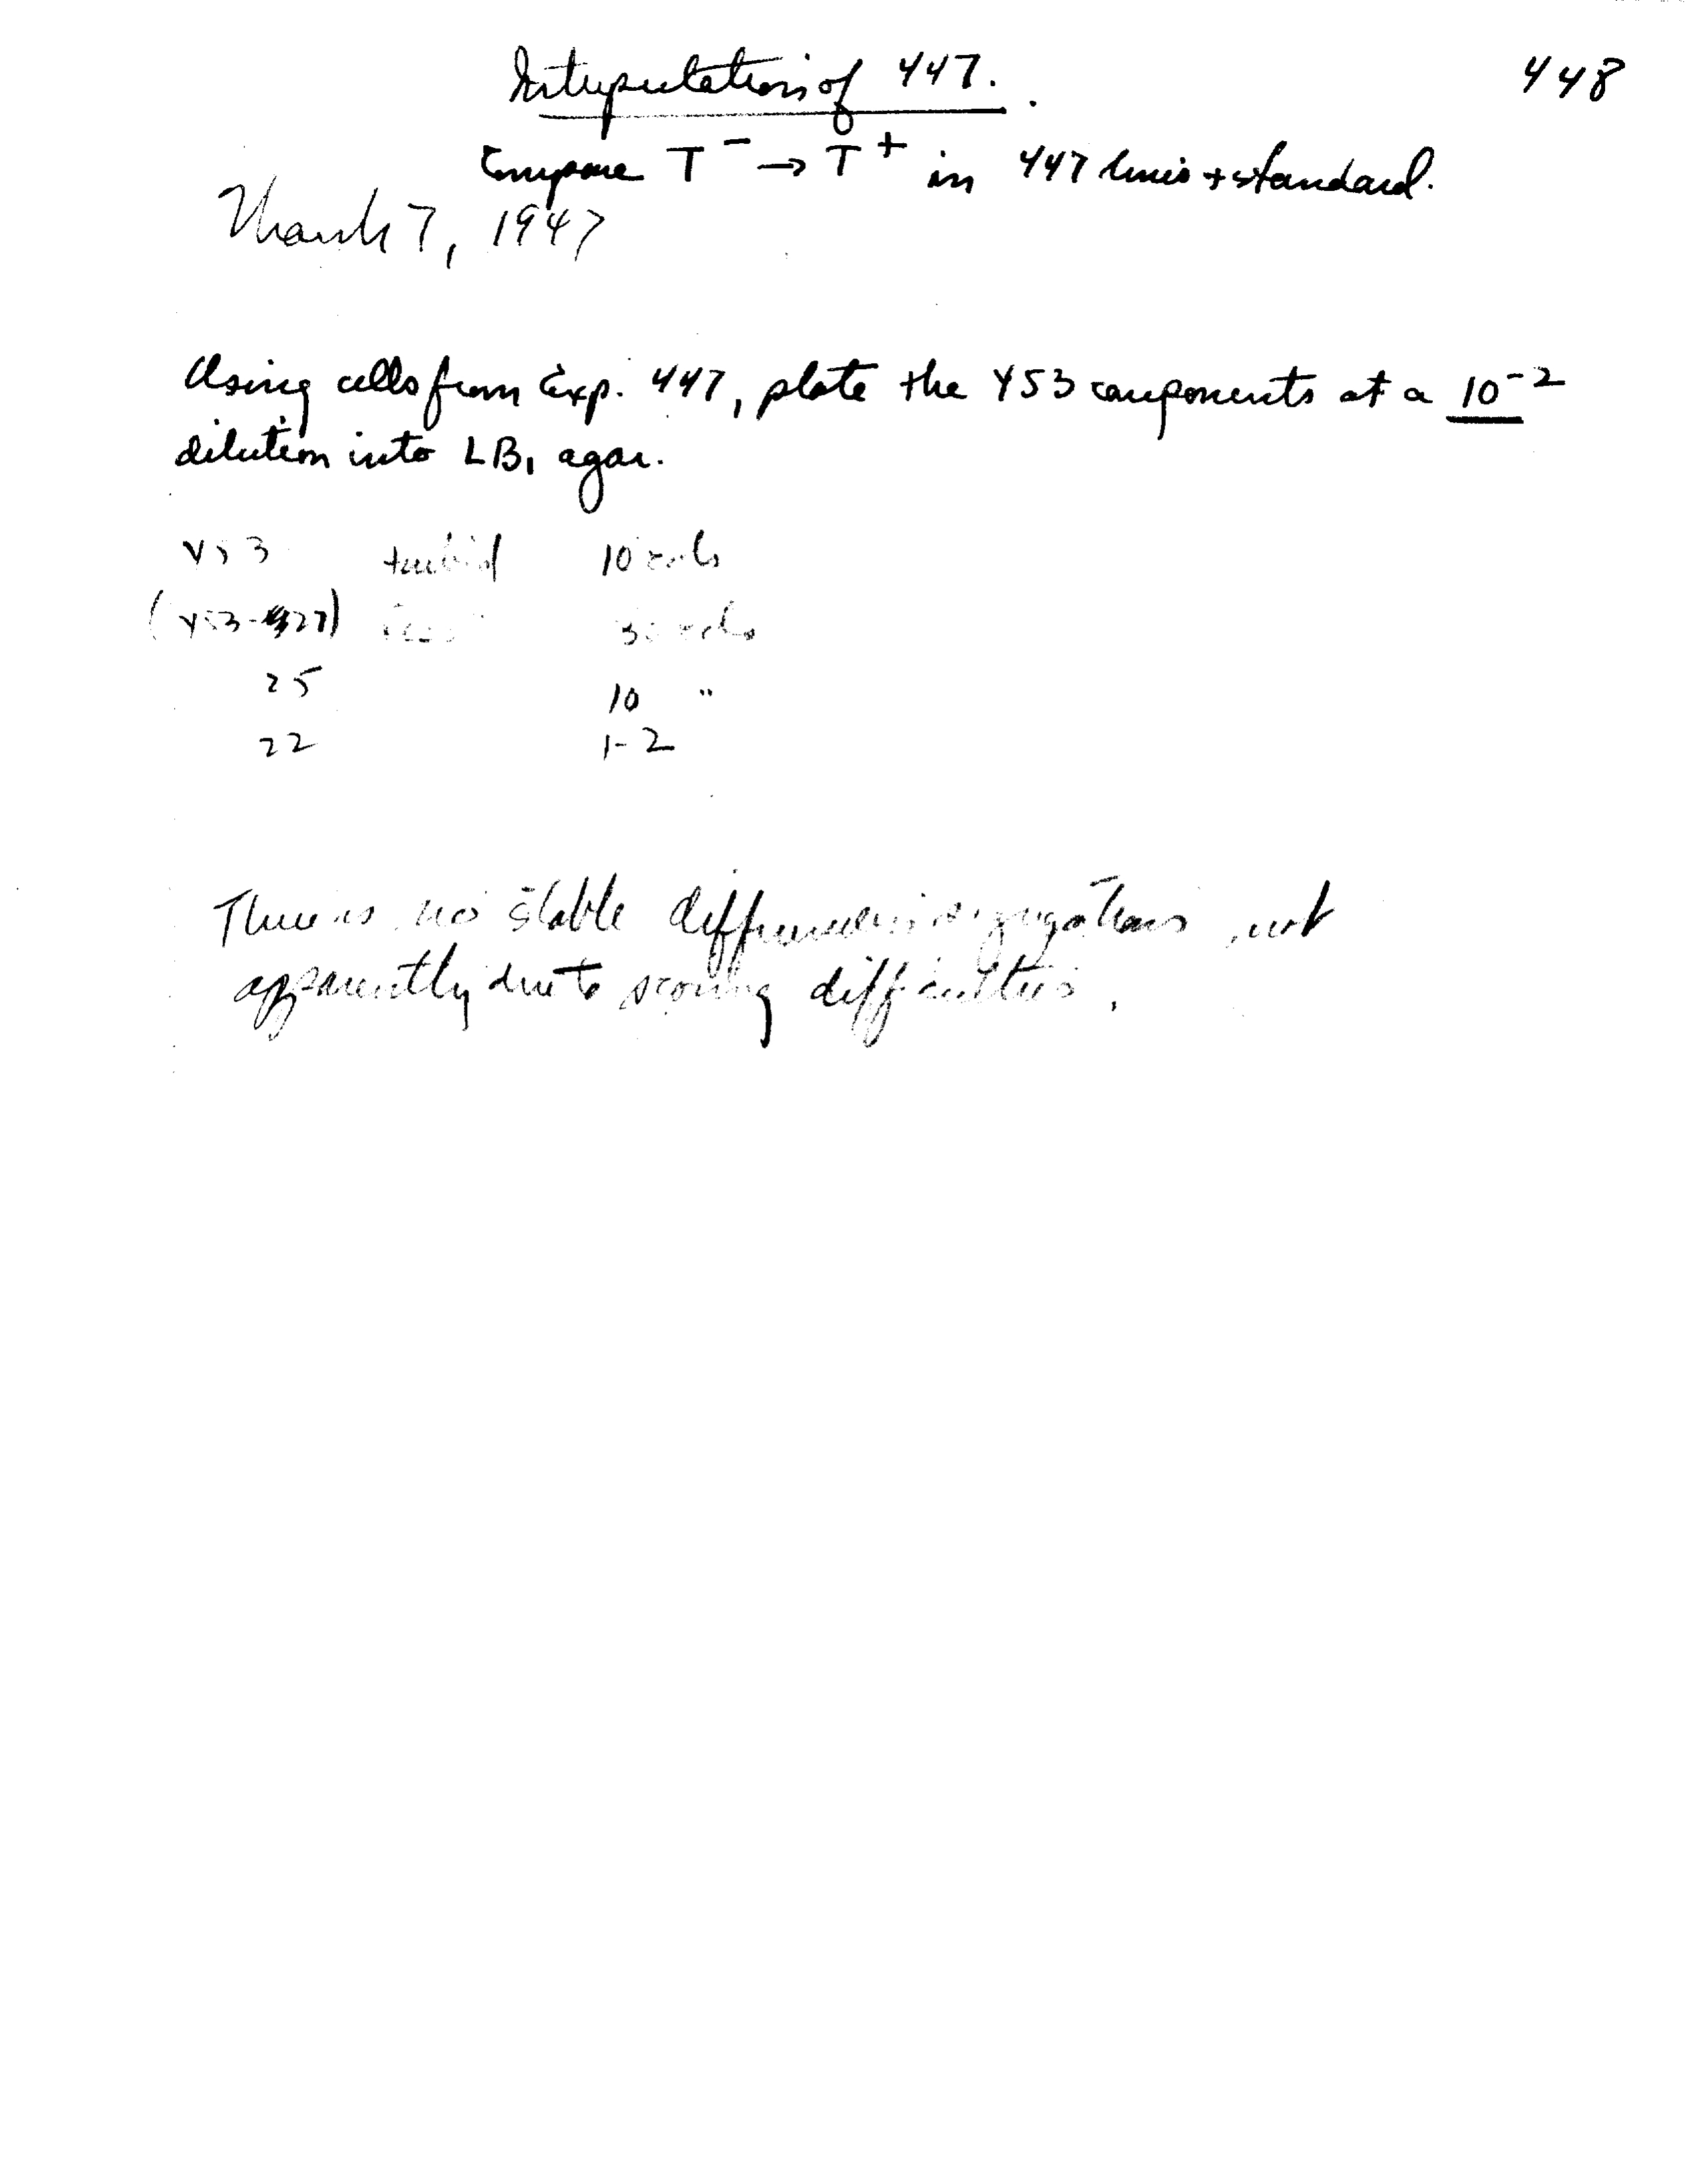 448
Interpretation of 447.
Compare T⁻ → T⁺ in 447 lines + standard.
March 7, 1947
Using cells from Exp. 447, plate the Y53 components at a 10⁻²
dilution into LB₁ agar.
Y53 turbid 10 cols
(Y53-427) 30 cols
25 10 "
22 1-2
There is no stable difference in segregations, not
apparently due to scoring difficulties.